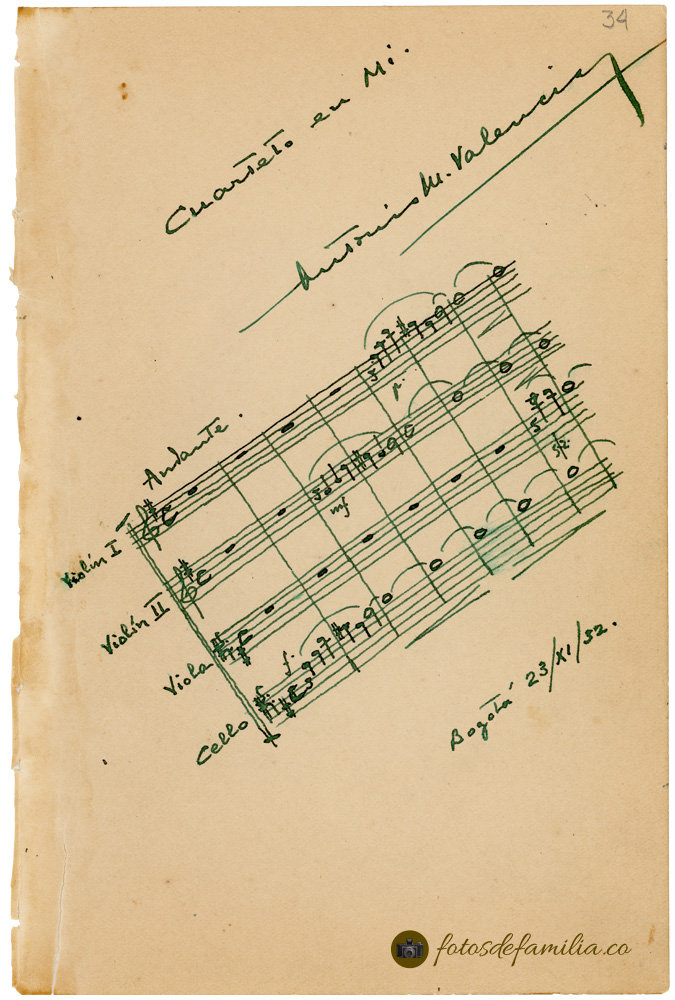 34
Cuarteto en Mi.
Antonio M. Valencia
Andante
Violín I
p.
Violín II
mf
Viola
Cello
f.
Bogotá 23/XI/32.
fotosdefamilia.co